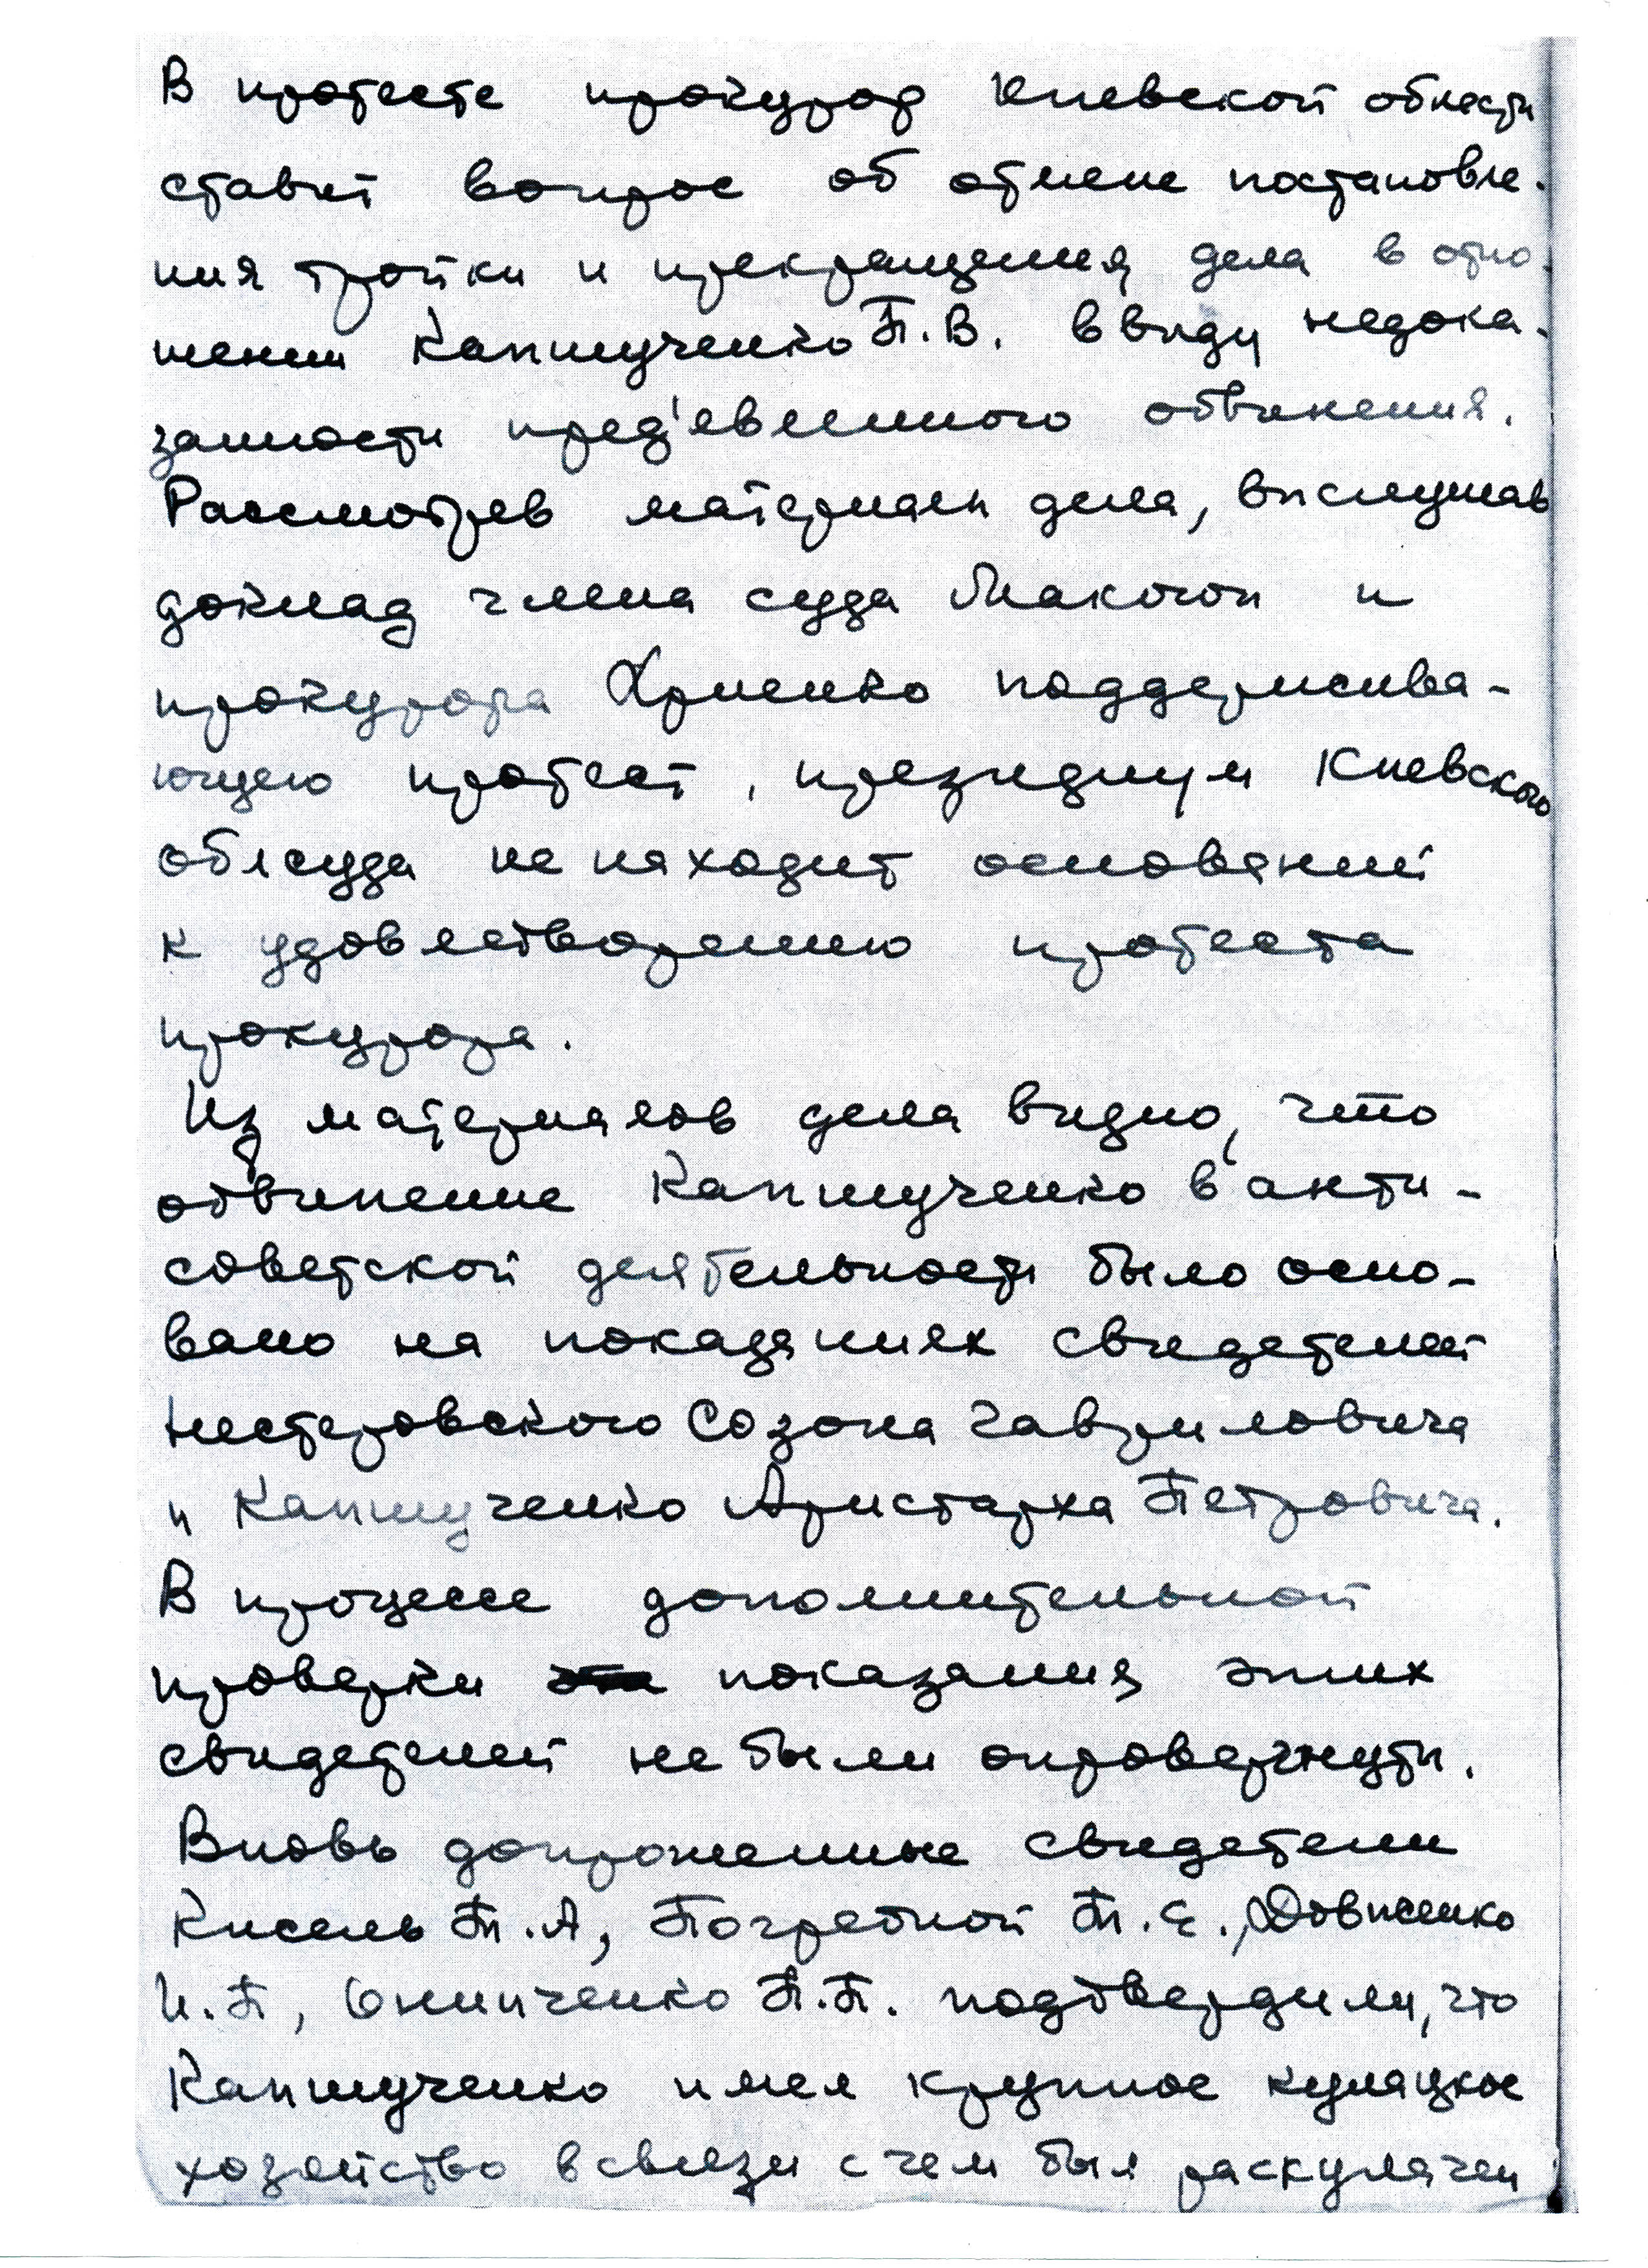 В протесте прокурор Киевской области
ставит вопрос об отмене постановле-
ния тройки и прекращения дела в отно-
шении Капшученко П.В. ввиду недока-
занности пред'евленного обвинения.
Рассмотрев материалы дела, выслушав
доклад члена суда Макогон и
прокурора Хриенко поддержива-
ющего протест, президиум Киевского
облсуда не находит оснований
к удовлетворению протеста
прокурора.
Из материалов дела видно, что
обвинение Капшученко в анти-
советской деятельности было осно-
вано на показаниях свидетелей
Нестеровского Созона Гавриловича
и Капшученко Аристарха Петровича.
В процессе дополнительной
проверки показания этих
свидетелей не были опровергнуты.
Вновь допрошенные свидетели
Кисель Т.А, Погребной Т.Е., Довженко
И.П, Онипченко П.П. подтвердили, что
Капшученко имел крупное кулацкое
хозяйство в связи с чем был раскулачен